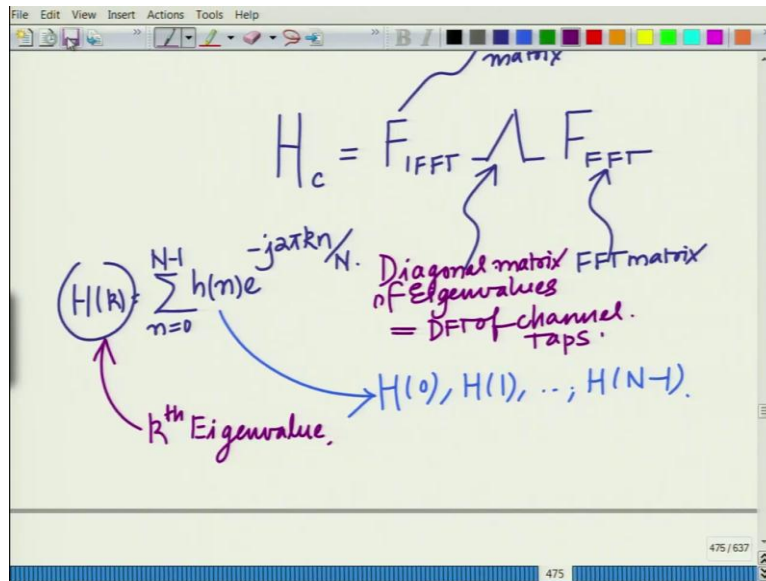 File Edit View Insert Actions Tools Help
B I
matrix
H_c = F_IFFT Λ F_FFT
H(k) = \sum_{n=0}^{N-1} h(n) e^{-j2πkn/N}.
Diagonal matrix
of Eigenvalues
= DFT of channel
Taps.
FFT matrix
H(0), H(1), ..., H(N-1).
kth Eigenvalue.
475/637
475